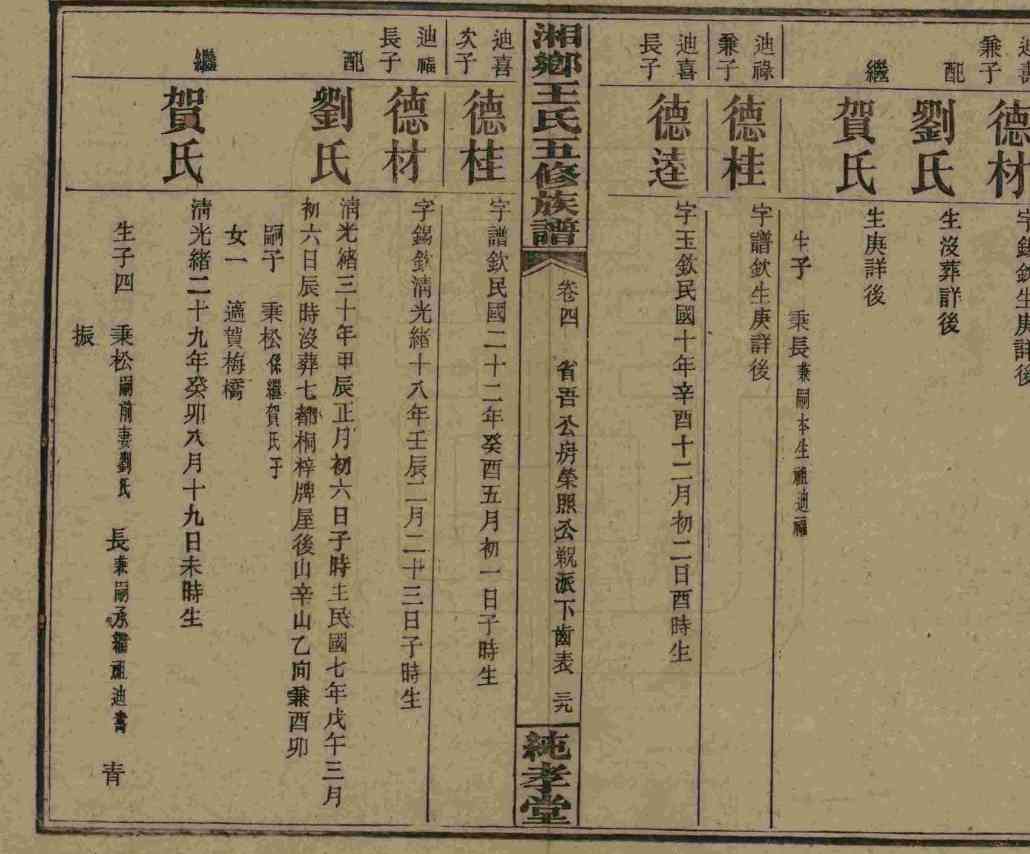 兼子
德材
字錫欽生庚詳後
配
劉氏
生沒葬詳後
繼
賀氏
生庚詳後
生子 秉長兼嗣本生祖迪福
迪祿
兼子
德桂
字譜欽生庚詳後
迪喜
長子
德逵
字玉欽民國十年辛酉十二月初二日酉時生
湘鄉王氏五修族譜
卷四 省吾公房榮照公親派下齒表 三九
純孝堂
迪喜
次子
德桂
字譜欽民國二十二年癸酉五月初一日子時生
迪福
長子
德材
字錫欽清光緒十八年壬辰二月二十三日子時生
配
劉氏
清光緒三十年甲辰正月初六日子時生民國七年戊午三月
初六日辰時沒葬七都桐梓牌屋後山辛山乙向兼酉卯
嗣子 秉松係繼賀氏子
女一 適賀梅橋
繼
賀氏
清光緒二十九年癸卯八月十九日未時生
生子四 秉松嗣前妻劉氏 長兼嗣承繼祖迪壽 青
振